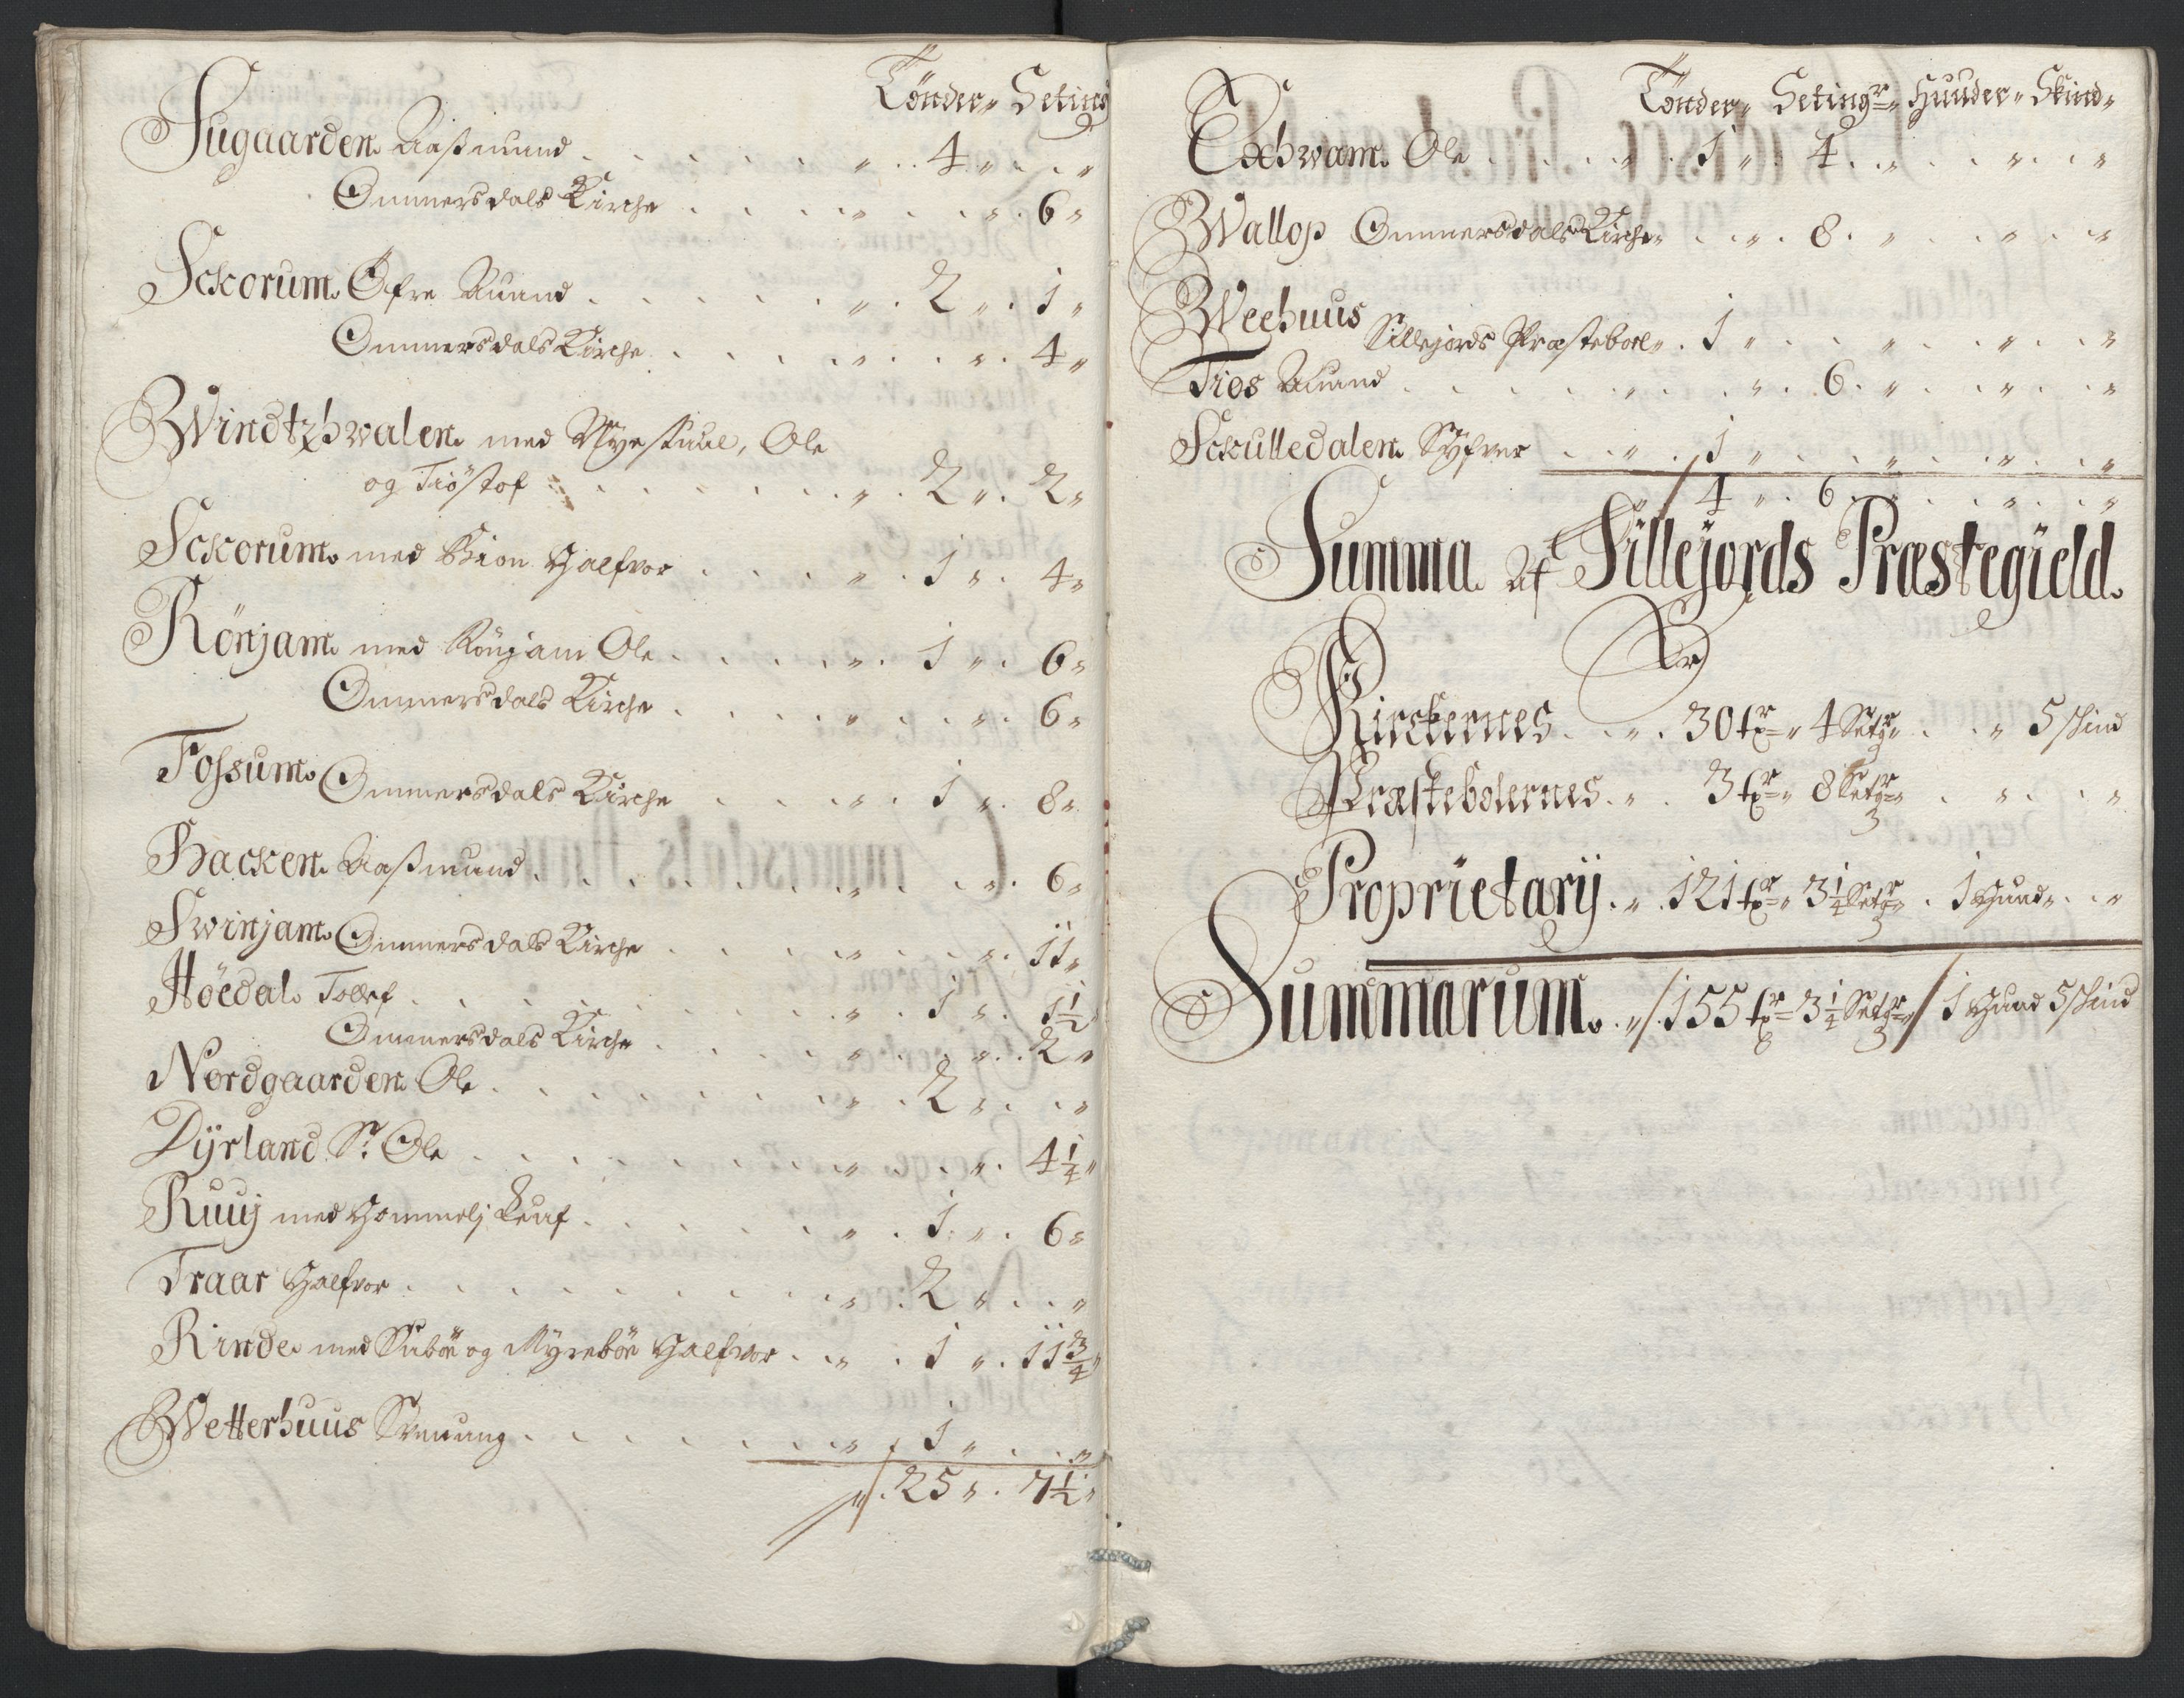 Tönder„ Seting
Sugaarden. Aaßmund . . . „ . 4 „ . . „
Ommersdals Kirche . . . „ . . „ . 6 „
Sckorum. Öfre Anund . . . „ . 2 „ . 1 „
Ommersdals Kirche . . . „ . . „ . 4 „
Windtzhwalen. med Myestuul, Ole
og Tiöstof . . . „ . 2 „ . 2 „
Sckorum. med Halfvor . . . „ . 1 „ . 4 „
Rönjam. med Rönjam Ole . . . „ . 1 „ . 6 „
Ommersdals Kirche . . . „ . . „ . 6 „
Fossum. Ommersdals Kirche . . . „ . 1 „ . 8 „
Backen. Aaßmund . . . „ . . „ . 6 „
Swinjam. Ommersdals Kirche . . . „ . . „ . 11 „
Höedal. Tollef . . . „ . 1 „ . 1½
Ommersdals Kirche . . . „ . . „ . 2 „
Nordgaarden Ole . . . „ . 2 „ . . „
Dÿrland Sr. Ole . . . „ . . „ . 4¼ „
Ruuj med . . . „ . 1 „ . 6 „
Traar Halfvor . . . „ . 2 „ . . „
Rinde. med og Myreböe Halfvor . . „ . 1 „ . 11¾ „
Wetterhuus . . . „ . 1 „ . . „
„ . 25 „ . 7½ „
Tönder„ Setingr„ Huuder„ Skind„
Exhwam. Ole . . . „ . 1 „ . 4 . „ . . „ . . „
Wallop Ommersdals Kirche„ . . „ . 8 . „ . . „ . . „
Weehuus Sillejords Præstebol„ . 1 „ . . „ . . „ . . „
Tios Anund . . . „ . . „ . 6 . „ . . „ . . „
Sckulledalen. Syfver . . „ . 1 „ . . „ . . „ . . „
„ 4 „ . 6 . „ . . „ . . „
Summa Af Sillejords Præstegield.
Er
Kirckernes . . „ . 30 tr „ 4 Setr „ . . „ 5 skind
Præstebolernes . „ . 3 tr „ 8 Setr „ . „ . . „
Proprietarij . „ . 121 tr „ 3¼ Setr „ . 1 Huud „ . . „
Summarum. . „ 155 tr 3¼ Setr „ 1 Huud 5 skind